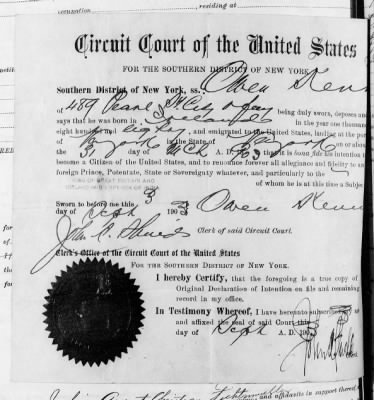 occupation residing at
Circuit Court of the United States
FOR THE SOUTHERN DISTRICT OF NEW YORK.
Southern District of New York, ss. Owen
of 489 Pearl St City being duly sworn, deposes and
says that he was born in Ireland In the year one thousand
eight hundred and eighty, and emigrated to the United States, landing at the port
of New York in the State of New York on or about
the A. D. that it is bona fide his intention
become a Citizen of the United States, and to renounce forever all allegiance and fidelity to any
foreign Prince, Potentate, State or Sovereignty whatever, and particularly to the King
KING OF GREAT BRITAIN AND
IRELAND AND EMPEROR OF INDIA
of whom he is at this time a Subject
Sworn to before me this 3 Owen
day of Sept 190
John A. Shields Clerk of said Circuit Court.
Clerk's Office of the Circuit Court of the United States
FOR THE SOUTHERN DISTRICT OF NEW YORK.
I hereby Certify, that the foregoing is a true copy of
Original Declaration of Intention on file and remaining
record in my office.
In Testimony Whereof, I have hereunto subscribed
and affixed the seal of said Court this
day of Sept A. D. 190
and affidavits in support thereof